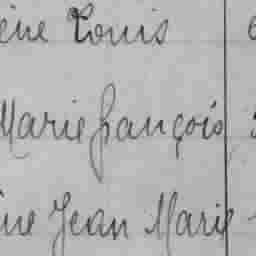 Louis
Marie françois
Jean Marie